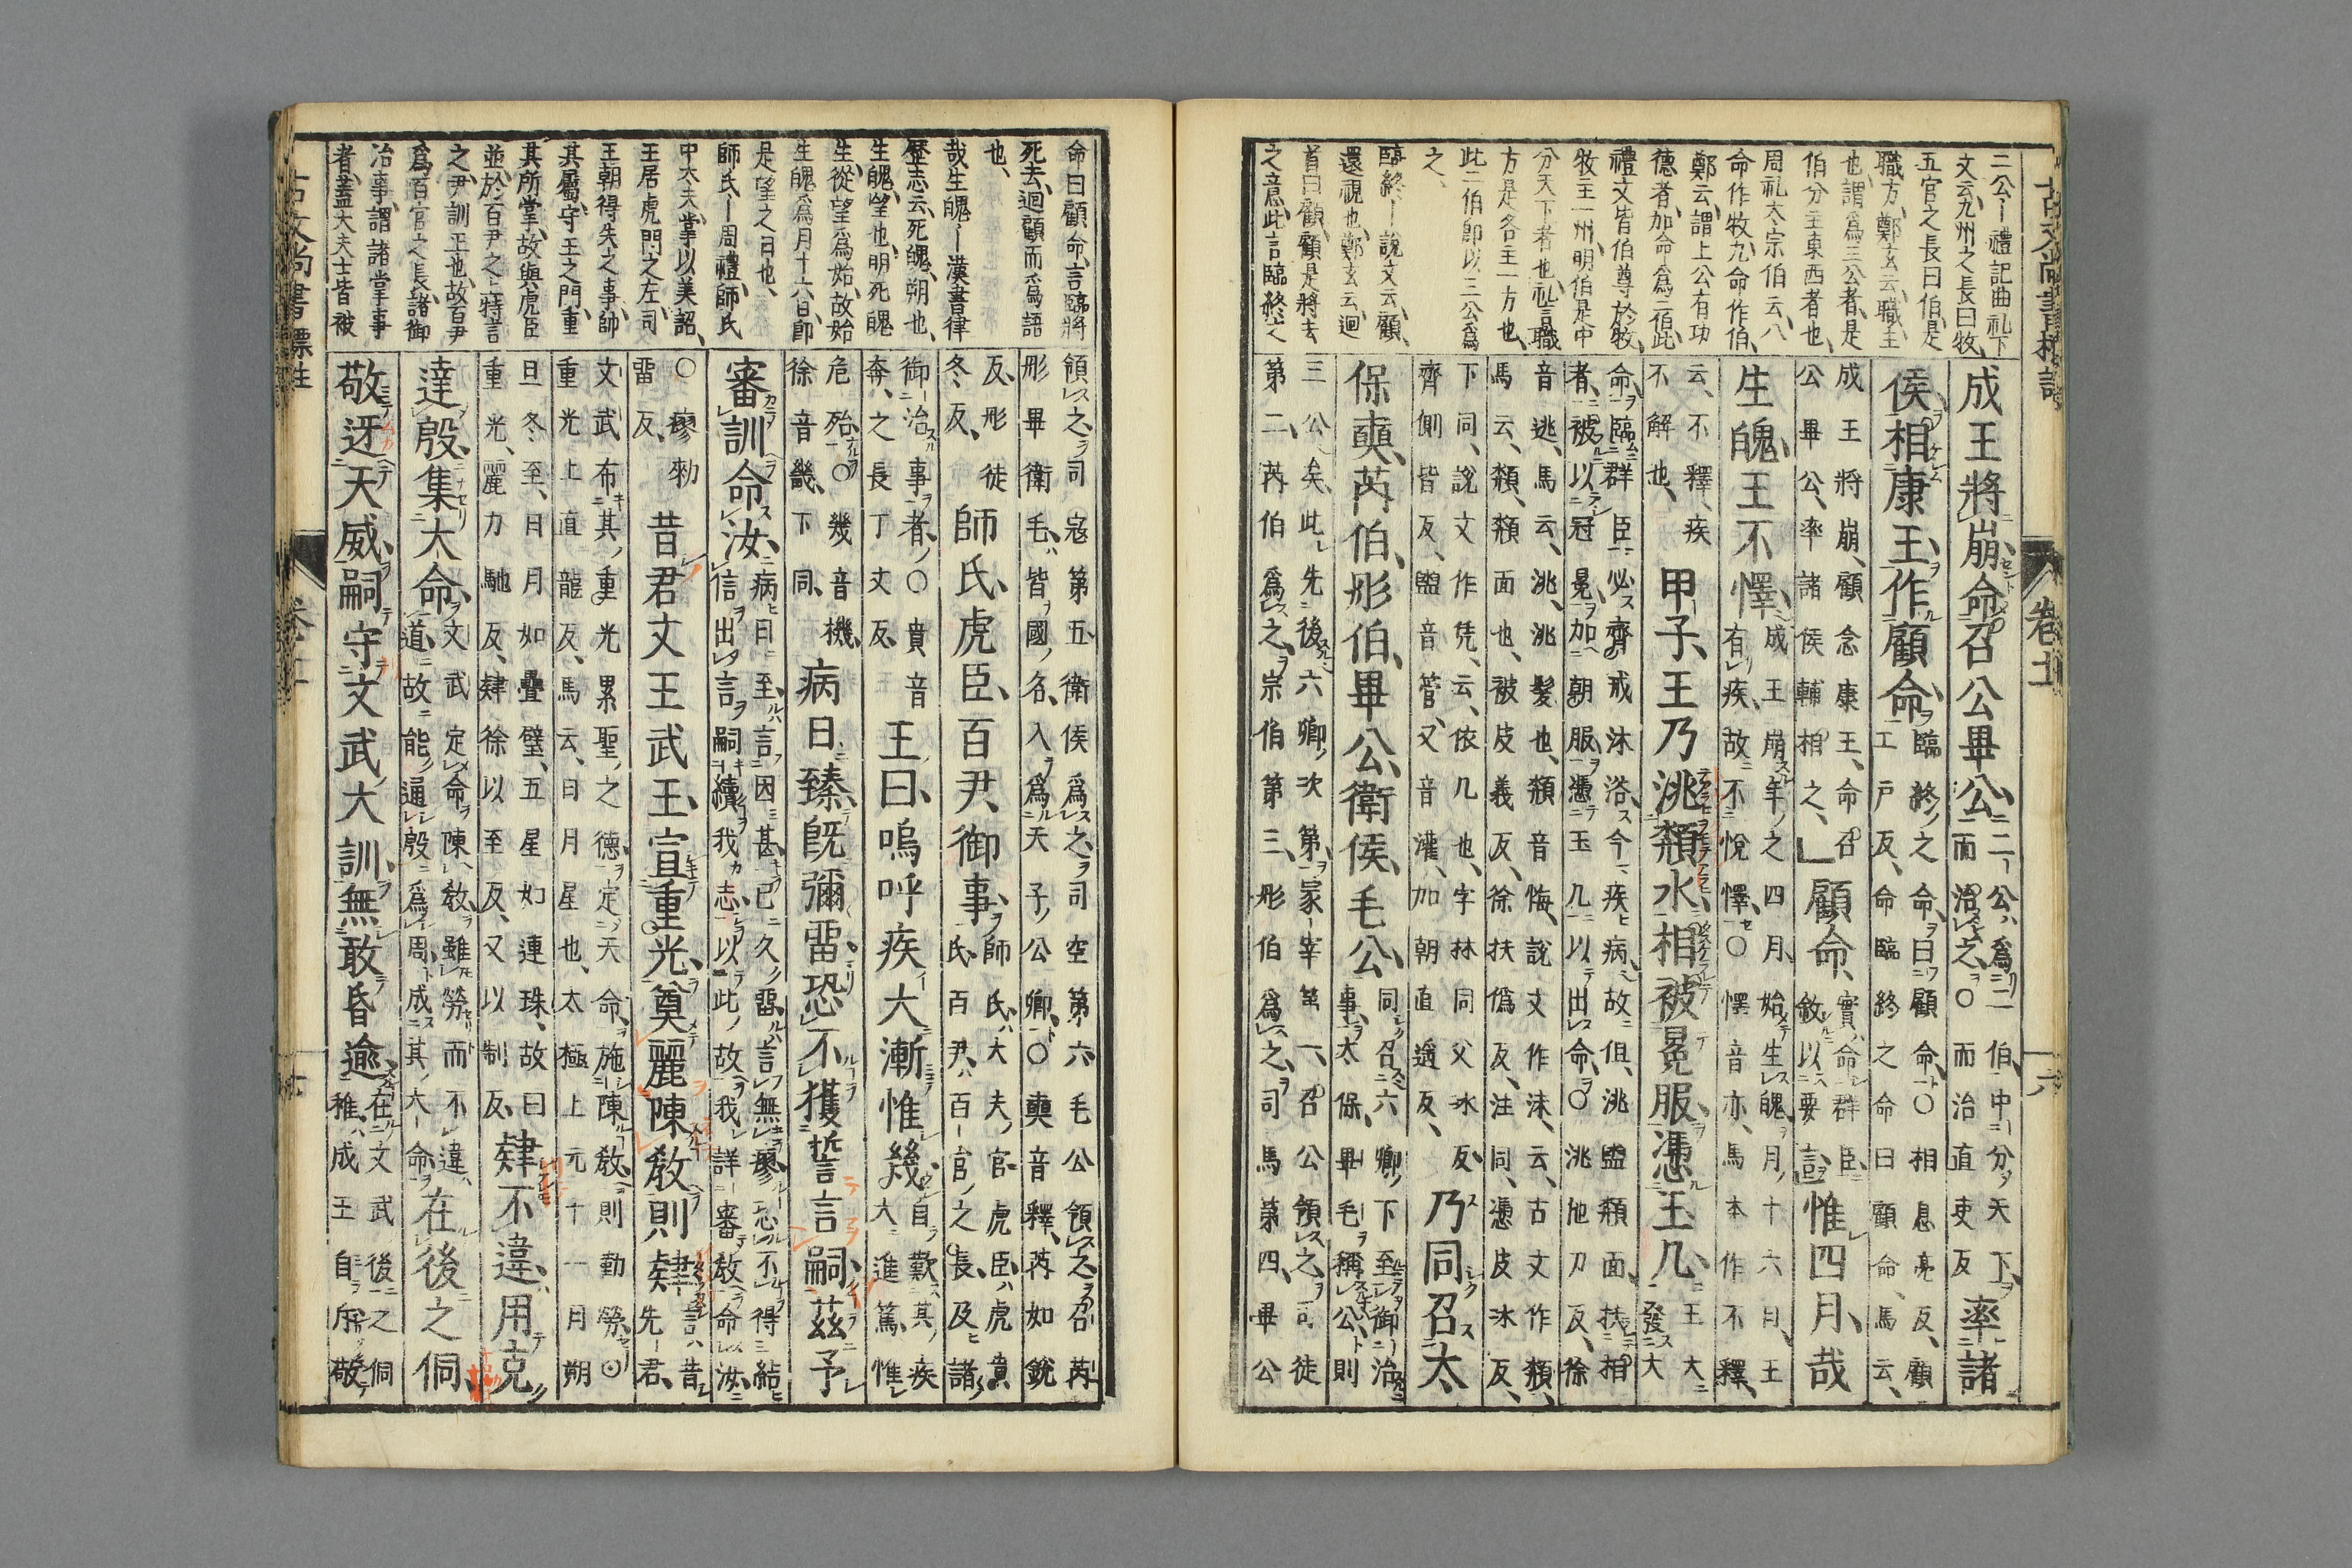 古文尚書標註 卷十一 十六
二公｜禮記曲礼下
文云九州之長曰牧
五官之長曰伯是
職方鄭玄云職主
也謂爲三公者是
伯分主東西者也
周礼大宗伯云八
命作牧九命作伯
鄭云謂上公有功
德者加命爲二伯此
禮文皆伯尊於牧
牧主一州明伯是中
分天下者也礼言職
方是各主一方也
此二伯即以三公爲
之
臨終｜說文云顧
還視也鄭玄云迴
首曰顧顧是將去
之意此言臨終之
成王將崩命召公畢公二公爲二伯中分天下而治之○而治直吏反率諸
侯相康王作顧命臨終之命曰顧命○相息亮反顧工戶反命臨終之命曰顧命馬云
成王將崩顧念康王命召公畢公率諸侯輔相之顧命實命群臣敘以要言惟四月哉
生魄王不懌成王崩年之四月始生魄月十六日王有疾故不悅懌○懌音亦馬本作不釋
云不釋疾不解也甲子王乃洮頮水相被冕服憑玉几王大發大
命臨群臣必齊戒沐浴今疾病故但洮盥頮面扶相者被以冠冕加朝服憑玉几以出命○洮他刀反徐
音逃馬云洮洮髮也頮音悔說文作沬云古文作頮馬云頮頮面也被皮義反徐扶僞反注同憑皮冰反
下同說文作凭云依几也字林同父冰反齊側皆反盥音管又音灌加朝直遙反乃同召太
保奭芮伯彤伯畢公衛侯毛公同召六卿下至御治事太保畢毛稱公則
三公矣此先後六卿次第冢宰第一召公領之司徒第二芮伯爲之宗伯第三彤伯爲之司馬第四畢公
命曰顧命言臨將
死去迴顧而爲語
也
哉生魄｜漢書律
歷志云死魄朔也
生魄望也明死魄
生從望爲始故始
生魄爲月十六日即
是望之日也
師氏｜周禮師氏
中大夫掌以美詔
王居虎門之左司
王朝得失之事帥
其屬守王之門重
其所掌故與虎臣
並於百尹之上特言
之尹訓正也故百尹
爲百官之長諸御
治事謂諸掌事
者蓋大夫士皆被
領之司寇第五衛侯爲之司空第六毛公領之召芮彤畢衛毛皆國名入爲天子公卿○奭音釋芮如銳
反彤徒冬反師氏虎臣百尹御事師氏大夫官虎臣虎賁氏百尹百官之長及諸
御治事者○賁音奔之長丁丈反王曰嗚呼疾大漸惟幾自歎其疾大進篤惟
危殆○幾音機徐音畿下同病日臻既彌留恐不獲誓言嗣茲予
審訓命汝病日至言因甚已久留言無瘳恐不得結信出言嗣續我志以此故我詳審教命汝
○瘳勑留反昔君文王武王宣重光奠麗陳教則肄言昔先君
文武布其重光累聖之德定天命施陳教則勤勞○重光上直龍反馬云日月星也太極上元十一月朔
旦冬至日月如疊璧五星如連珠故曰重光麗力馳反肄徐以至反又以制反肄不違用克
達殷集大命文武定命陳教雖勞而不違道故能通殷爲周成其大命在後之侗
敬迓天威嗣守文武大訓無敢昏逾在文武後之侗稚成王自斥敬
古文尚書標註